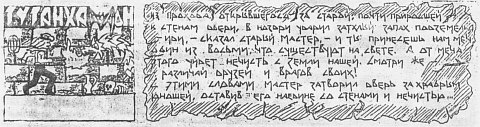 ТУТАНХАМОН
ИЗ ПРОХОДА, ОТКРЫВШЕГОСЯ ЗА СТАРОЙ, ПОЧТИ ПРИРОСШЕЙ
К СТЕНАМ ДВЕРИ, В НОЗДРИ УДАРИЛ ЗАТХЛЫЙ ЗАПАХ ПОДЗЕМЕЛЬЯ
ИДИ, – СКАЗАЛ СТАРЫЙ МАСТЕР, – И ТЫ ПРИНЕСЕШЬ НАМ МЕЧ
ОДИН ИЗ ВОСЬМИ, ЧТО СУЩЕСТВУЮТ НА СВЕТЕ. А ОТ МЕЧА
ЭТОГО УМРЕТ НЕЧИСТЬ С ЗЕМЛИ НАШЕЙ. СМОТРИ ЖЕ
РАЗЛИЧАЙ ДРУЗЕЙ И ВРАГОВ СВОИХ!
С ЭТИМИ СЛОВАМИ МАСТЕР ЗАТВОРИЛ ДВЕРЬ ЗА ХРАБРЫМ
ЮНОШЕЙ, ОСТАВИВ ЕГО НАЕДИНЕ СО СТЕНАМИ И НЕЧИСТЬЮ